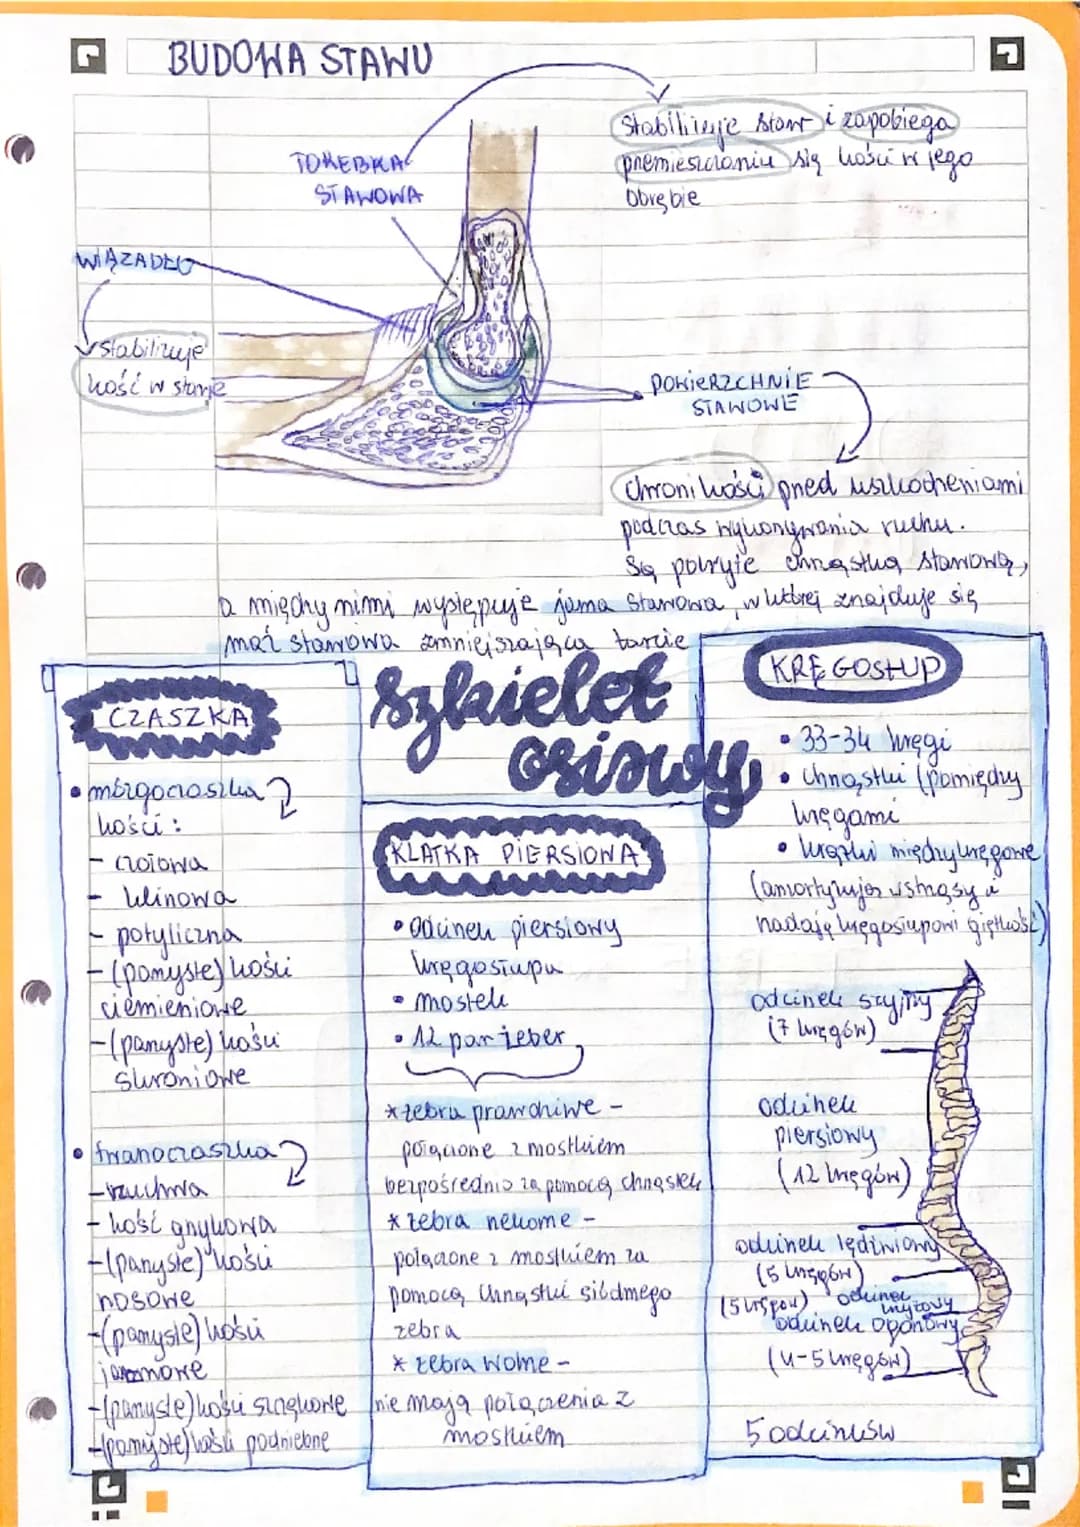 BUDOWA STAWU
TOREBKA
STAWOWA
Stabilizuje staw i zapobiega
przemieszczaniu się kości w jego
obrębie
WIĄZADŁO
stabilizuje
kość w stawie
POWIERZCHNIE
STAWOWE
Chroni kości przed uszkodzeniami
podczas wykonywania ruchu.
Są pokryte chrząstką stawową,
a między nimi występuje jama stawowa, w której znajduje się
maź stawowa zmniejszająca tarcie
Szkielet
osiowy
CZASZKA
• mózgoczaszka
kości:
- czołowa
- klinowa
- potyliczna
- (parzyste) kości
ciemieniowe
- (parzyste) kości
skroniowe
• twarzoczaszka
- żuchwa
- kość gnykowa
- (parzyste) kości
nosowe
- (parzyste) kości
jarzmowe
- (parzyste) kości szczękowe
- (parzyste) kości podniebne
KLATKA PIERSIOWA
• Odcinek piersiowy
kręgosłupa
• mostek
• 12 par żeber
* żebra prawdziwe -
połączone z mostkiem
bezpośrednio za pomocą chrząstek
* żebra rzekome -
połączone z mostkiem za
pomocą chrząstki siódmego
żebra
* żebra wolne -
nie mają połączenia z
mostkiem
KRĘGOSŁUP
• 33-34 kręgi
• chrząstki (pomiędzy
kręgami
• krążki międzykręgowe
(amortyzują wstrząsy i
nadają kręgosłupowi giętkość)
odcinek szyjny
(7 kręgów)
odcinek
piersiowy
(12 kręgów)
odcinek lędźwiowy
(5 kręgów)
(5 kręgów) odcinek
krzyżowy
odcinek ogonowy
(4-5 kręgów)
5 odcinków